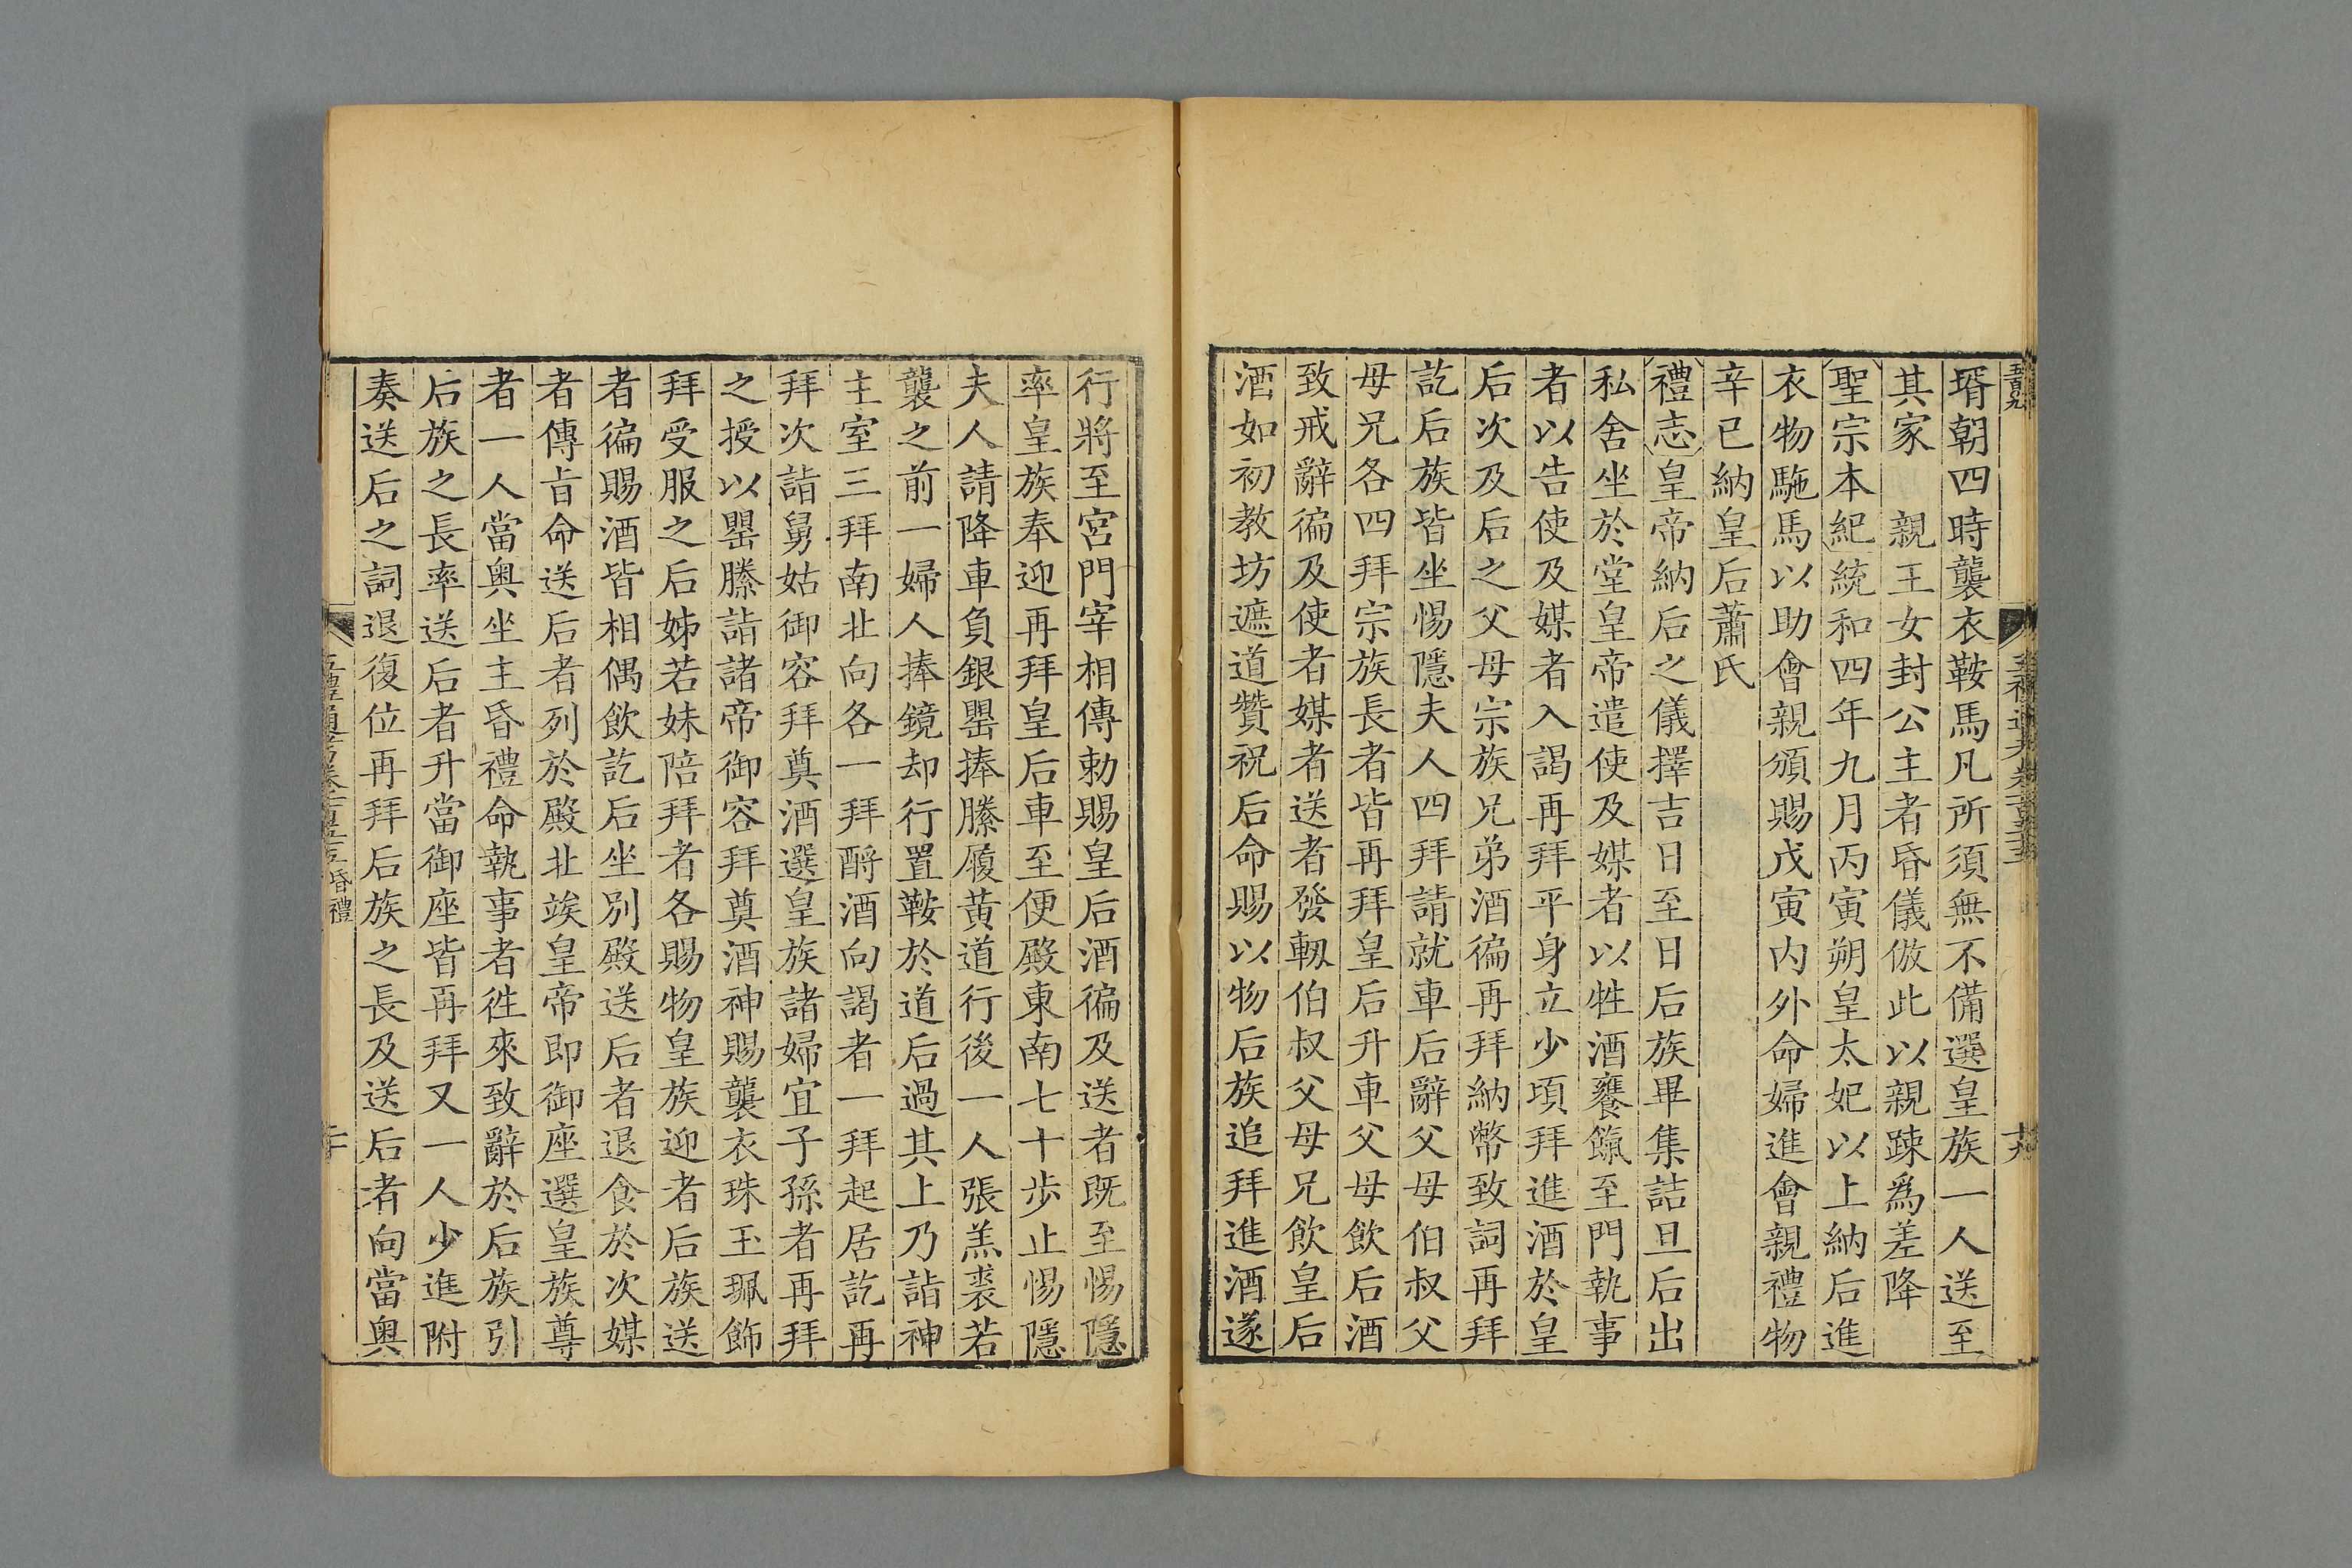 壻朝四時襲衣鞍馬凡所須無不備選皇族一人送至
其家　親王女封公主者昏儀倣此以親踈爲差降
聖宗本紀統和四年九月丙寅朔皇太妃以上納后進
衣物駞馬以助會親頒賜戊寅内外命婦進會親禮物
辛已納皇后蕭氏
禮志皇帝納后之儀擇吉日至日后族畢集詰旦后出
私舍坐於堂皇帝遣使及媒者以牲酒饔餼至門執事
者以告使及媒者入謁再拜平身立少頃拜進酒於皇
后次及后之父母宗族兄弟酒徧再拜納幣致詞再拜
訖后族皆坐惕隱夫人四拜請就車后辭父母伯叔父
母兄各四拜宗族長者皆再拜皇后升車父母飲后酒
致戒辭徧及使者媒者送者發軔伯叔父母兄飲皇后
酒如初教坊遮道贊祝后命賜以物后族追拜進酒遂
行將至宮門宰相傳勅賜皇后酒徧及送者既至惕隱
率皇族奉迎再拜皇后車至便殿東南七十歩止惕隱
夫人請降車負銀罌捧縢履黄道行後一人張羔裘若
襲之前一婦人捧鏡却行置鞍於道后過其上乃詣神
主室三拜南北向各一拜酹酒向謁者一拜起居訖再
拜次詣舅姑御容拜奠酒選皇族諸婦宜子孫者再拜
之授以罌縢詣諸帝御容拜奠酒神賜襲衣珠玉珮飾
拜受服之后姊若妹陪拜者各賜物皇族迎者后族送
者徧賜酒皆相偶飲訖后坐別殿送后者退食於次媒
者傳旨命送后者列於殿北竢皇帝即御座選皇族尊
者一人當奥坐主昏禮命執事者徃來致辭於后族引
后族之長率送后者升當御座皆再拜又一人少進附
奏送后之詞退復位再拜后族之長及送后者向當奥
昏禮